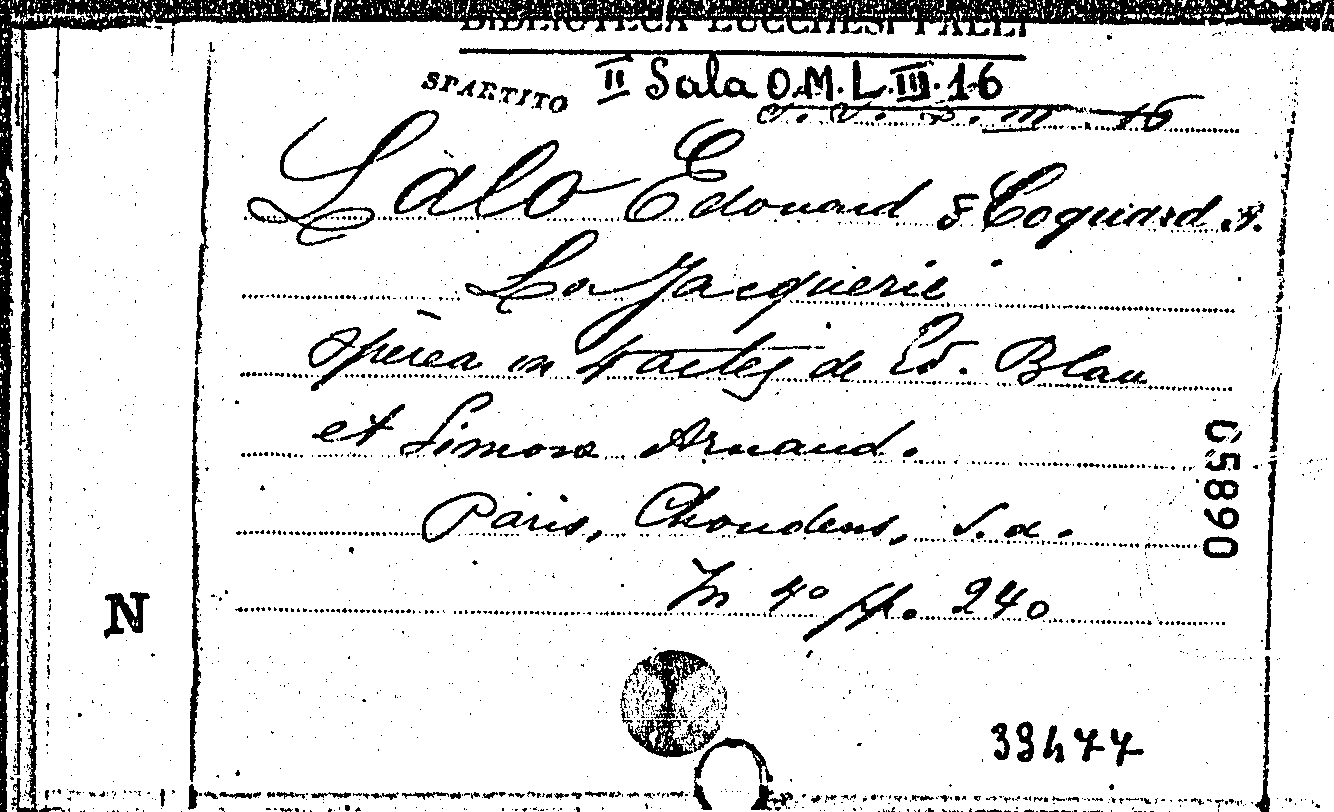 BIBLIOTECA LUCCHESI PALLI
SPARTITO II Sala O.M.L.III.16
Lalo Edouard & Coquard A.
La Jacquerie
Opèrea in 4 actes de Ed. Blau
et Simone Arnaud.
Paris, Choudens, s.a.
In 4° pp. 240
65890
N
33477